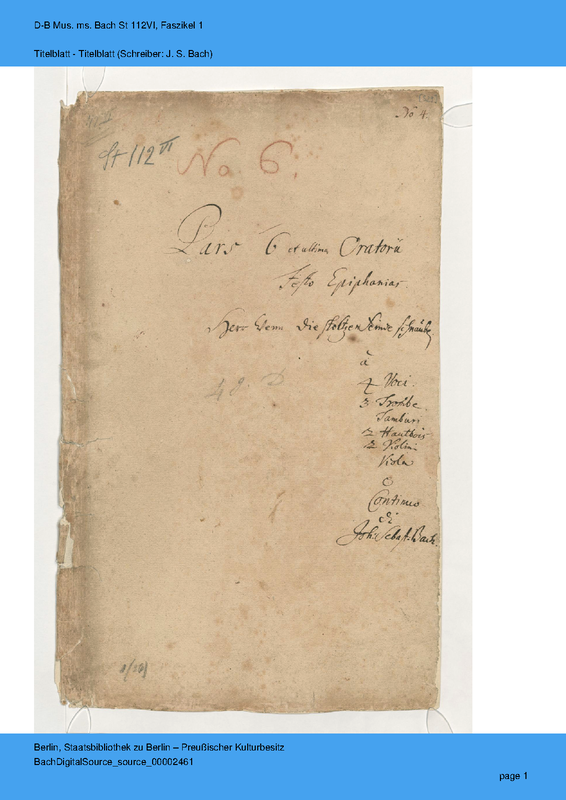 D-B Mus. ms. Bach St 112VI, Faszikel 1
Titelblatt - Titelblatt (Schreiber: J. S. Bach)
No 4.
St 112 VI
No 6.
Pars 6 et ultima Oratorii
Festo Epiphanias
Herr Wenn die stoltzen Feinde schnauben
à
4 Voci.
3 Trombe
Tamburi
2 Hautbois
2 Violini
Viola
e
Continuo
di
Joh: Sebast: Bach
Berlin, Staatsbibliothek zu Berlin – Preußischer Kulturbesitz
BachDigitalSource_source_00002461
page 1